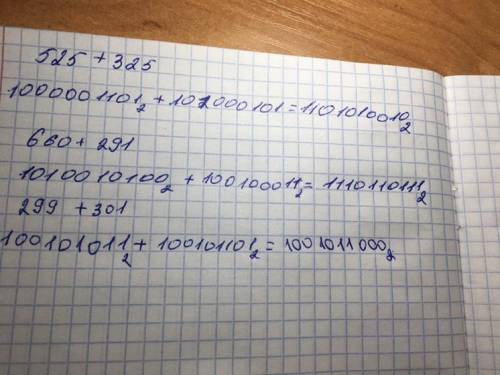 525 + 325
1000001101₂ + 101000101 = 1101010010₂
660 + 291
1010010100₂ + 100100011₂ = 1110110111₂
299 + 301
100101011₂ + 100101101₂ = 1001011000₂